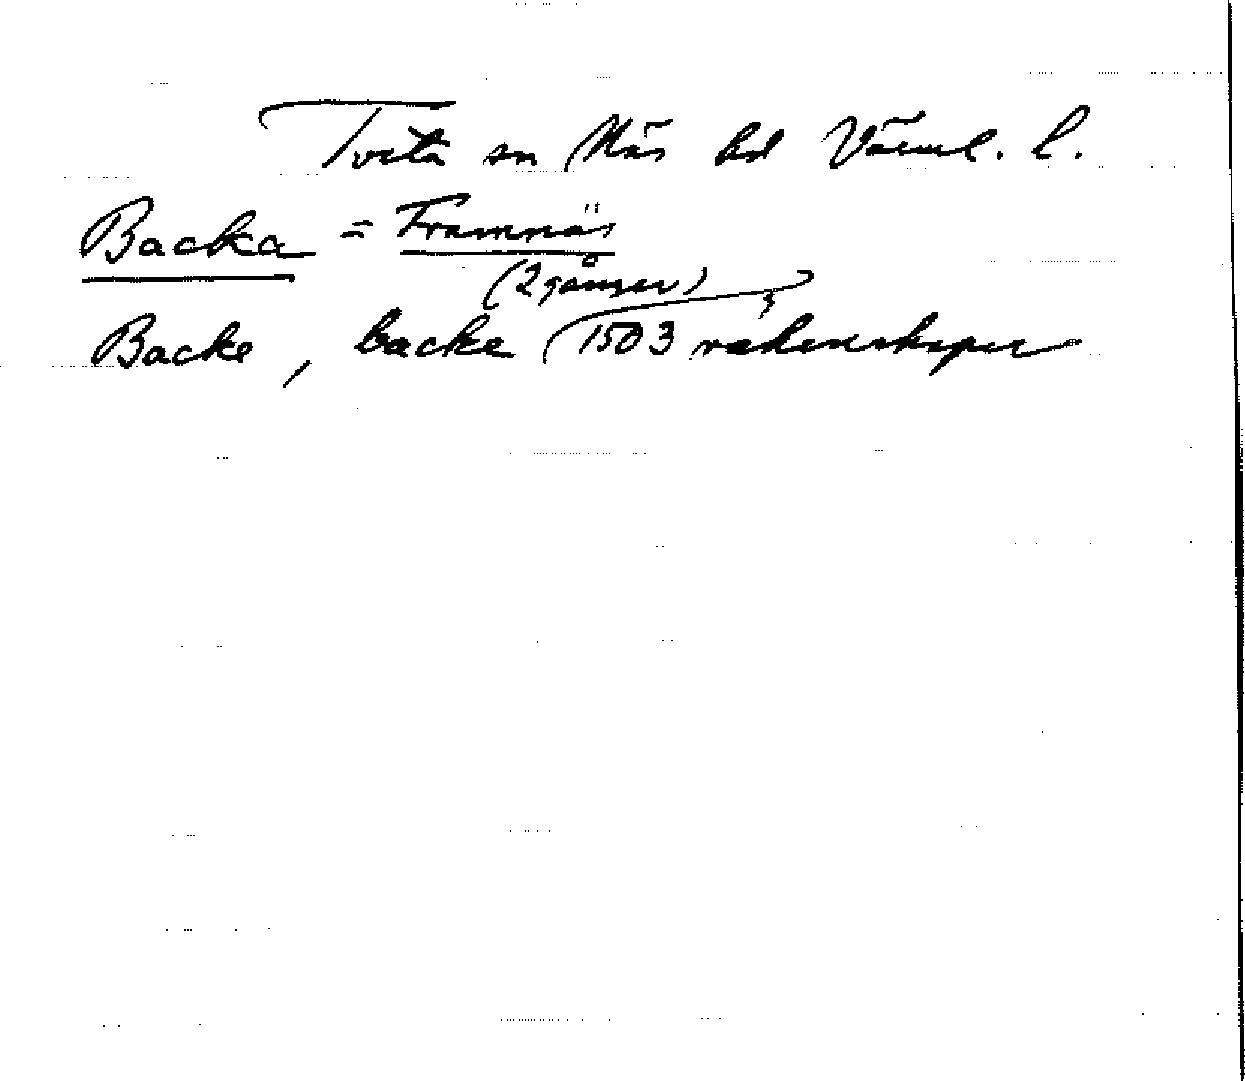 Tveta sn Näs hd Värml. l.
Backa = Framnäs
(2 gånger)
Backe, backe 1503 räkenskaper